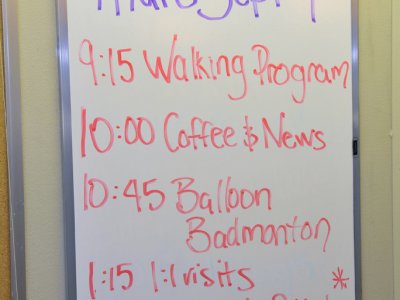 Thurs Sept
9:15 Walking Program
10:00 Coffee & News
10:45 Balloon
Badmonton
1:15 1:1 visits *